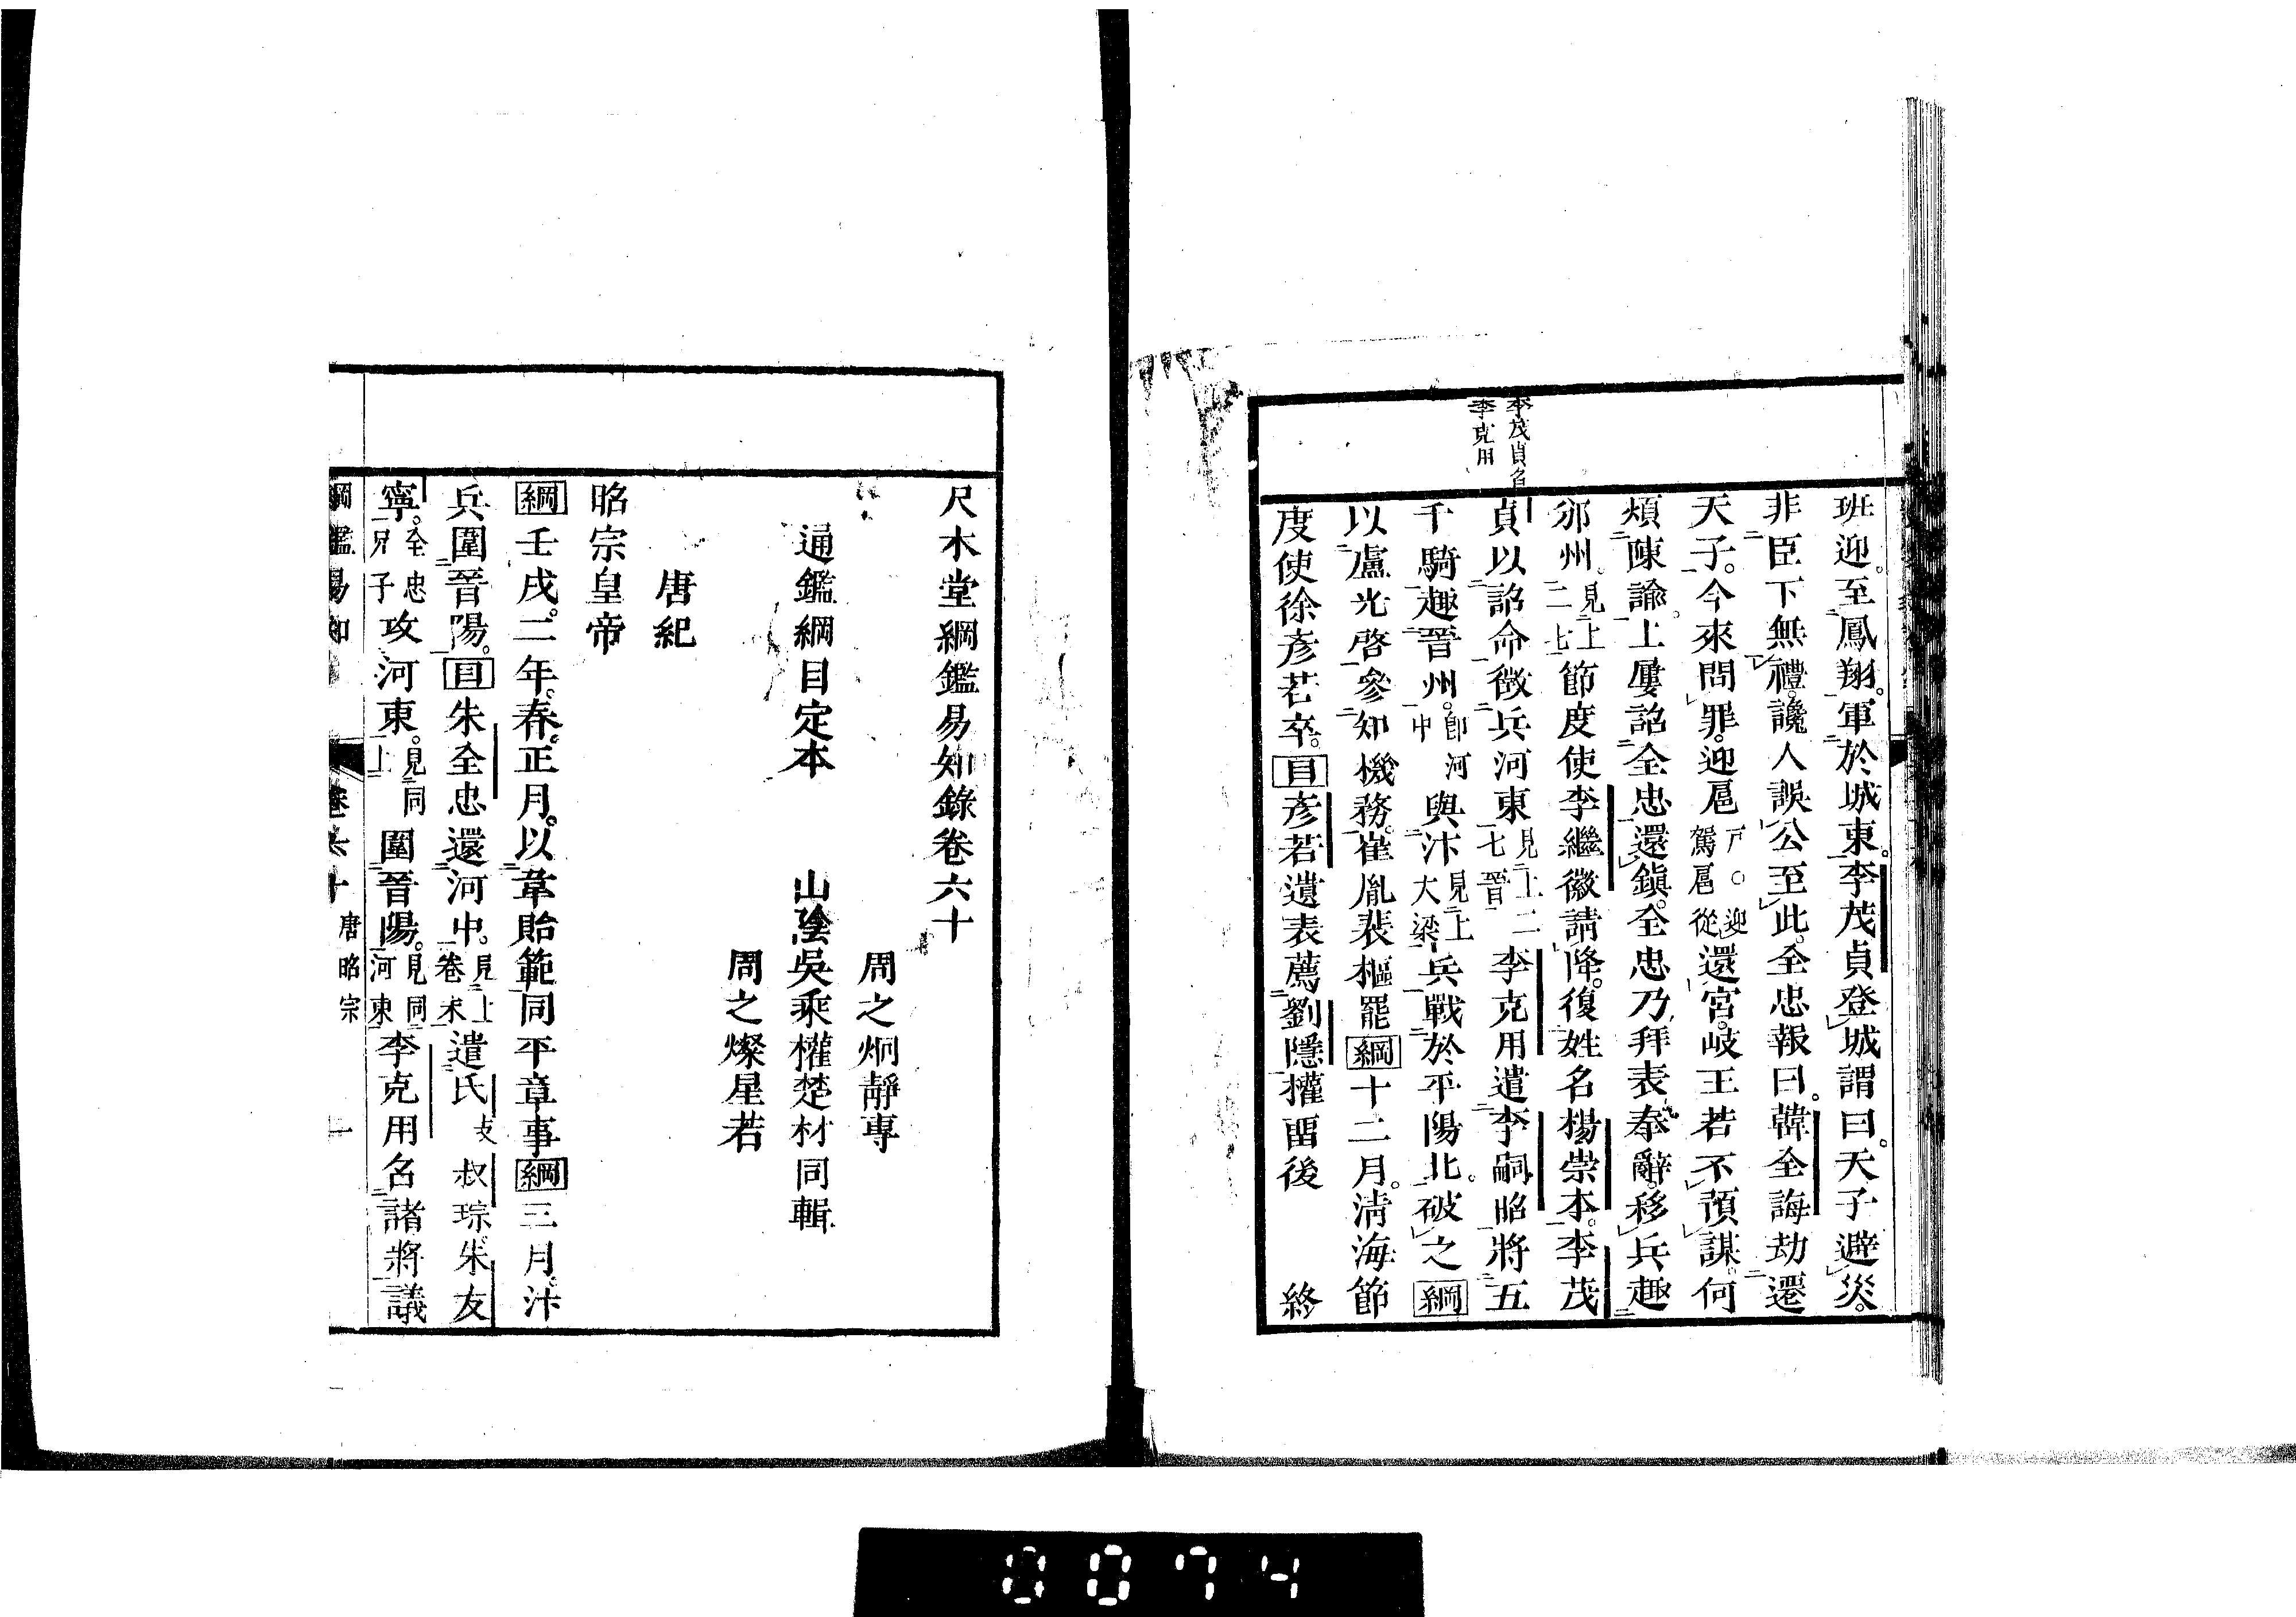 李茂貞名
李克用
班迎。至鳳翔。軍於城東。李茂貞登城謂曰。天子避災。
非臣下無禮。讒人誤公至此。全忠報曰。韓全誨劫遷
天子。今來問罪。迎扈戸。○迎駕扈從還宮。岐王若不預謀。何
煩陳諭。上屢詔全忠還鎭。全忠乃拜表奉辭。移兵趣
邠州。見上二七節度使李繼徽請降。復姓名楊崇本。李茂
貞以詔命徴兵河東見上二七晉李克用遣李嗣昭將五
千騎趣晉州。卽河中與汴見上大梁兵戰於平陽北。破之綱
以盧光啓參知機務。崔胤裴樞罷綱十二月。淸海節
度使徐彥若卒。目彥若遺表薦劉隱權畱後 終
尺木堂綱鑑易知錄卷六十
周之炯靜專
通鑑綱目定本 山陰吳乘權楚材同輯
周之燦星若
唐紀
昭宗皇帝
綱壬戌。二年。春。正月。以韋貽範同平章事綱三月。汴
兵圍晉陽。目朱全忠還河中。見上卷末遣氏支叔琮。朱友
寧。全忠兄子攻河東。見同上圍晉陽。見同河東李克用召諸將議
綱鑑易知 卷六十 唐昭宗 一
0074